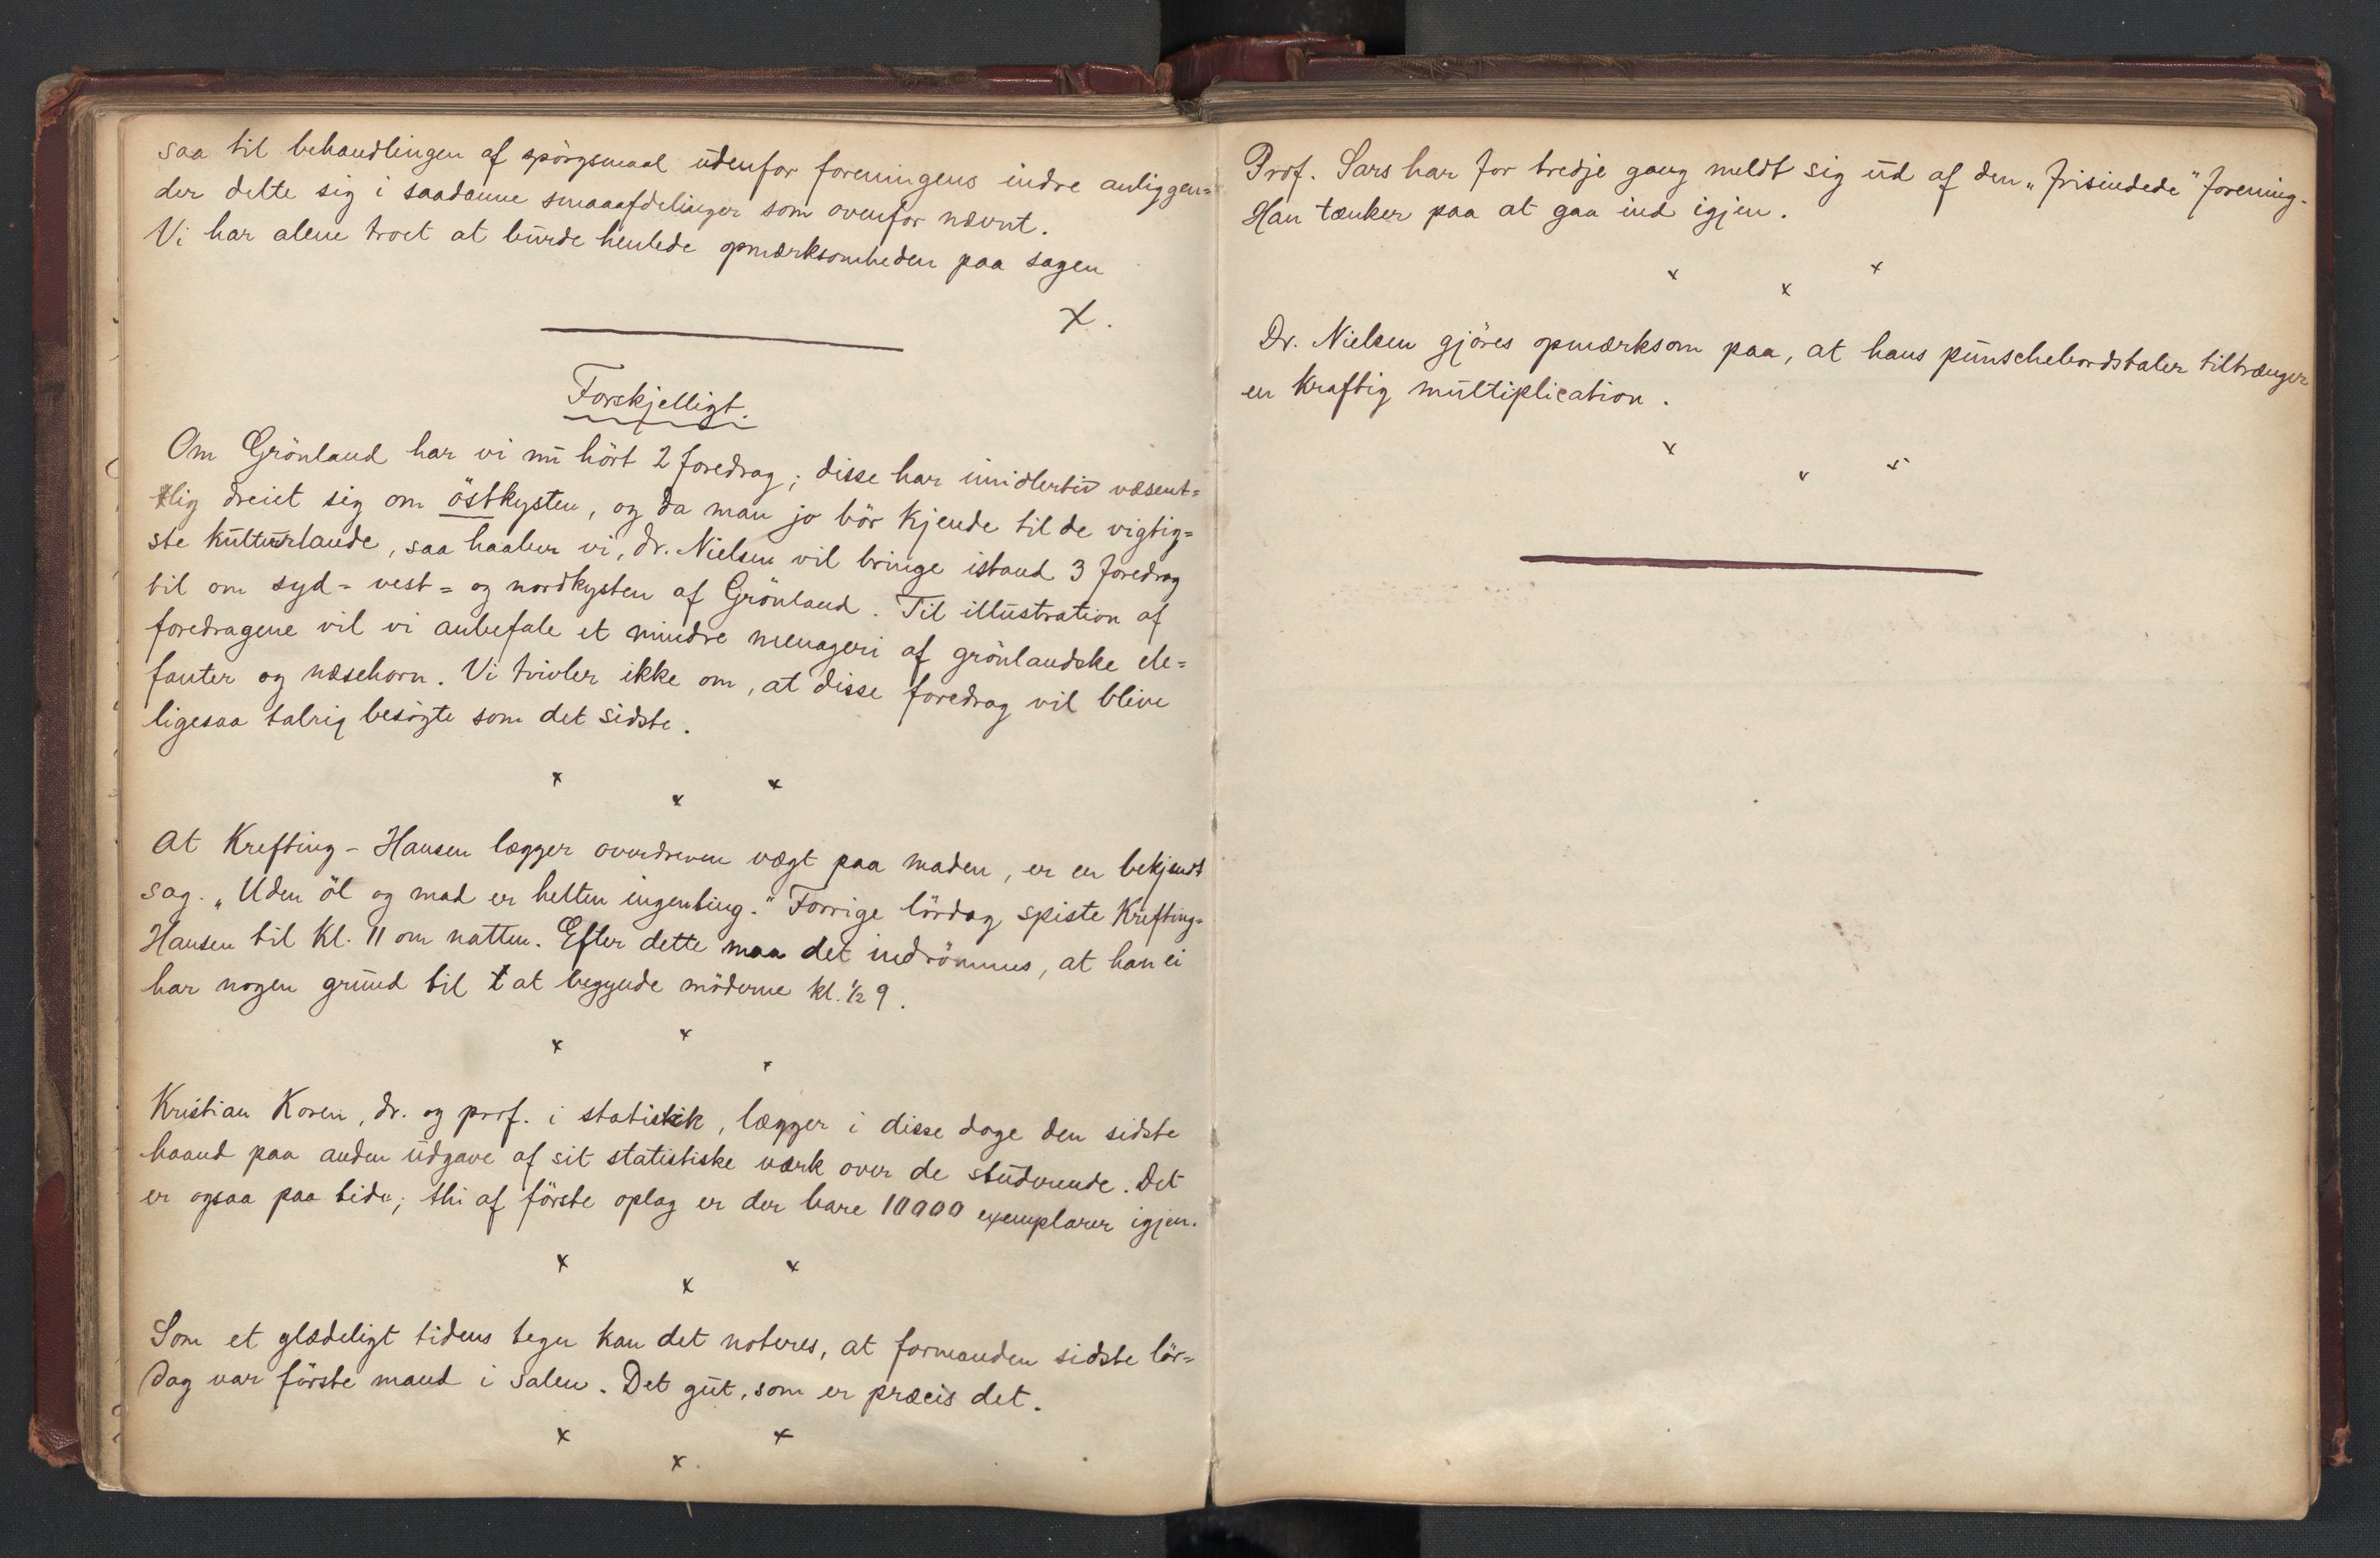 saa til behandlingen af spörgsmaal udenfor foreningens indre anliggen=
der delte sig i saadanne smaaafdelinger som ovenfor nævnt.
Vi har alene troet at burde henlede opmærksomheden paa sagen
X.
Forskjelligt.
Om Grönland har vi nu hört 2 foredrag; disse har imidlertid væsent=
lig dreiet sig om östkysten, og da man jo bör kjende til de vigtig=
ste kulturlande, saa haaber vi, dr. Nielsen vil bringe istand 3 foredrag
til om syd= vest= og nordkysten af Grönland. Til illustration af
foredragene vil vi anbefale et mindre menageri af grönlandske ele=
fanter og næsehorn. Vi tvivler ikke om, at disse foredrag vil blive
ligesaa talrig besögte som det sidste.
x x x
At Krefting-Hansen lægger overdreven vægt paa maden, er en bekjendt
sag. „Uden öl og mad er helten ingenting." Forrige lördag spiste Krefting=
Hansen til kl. 11 om natten. Efter dette maa det indrömmes, at han ei
har nogen grund til at begynde möderne kl. ½ 9.
x x x
Kristian Koren, dr. og prof. i statistik, lægger i disse dage den sidste
haand paa anden udgave af sit statistiske værk over de studerende. Det
er ogsaa paa tide; thi af förste oplag er der bare 10000 exemplarer igjen.
x x x
Som et glædeligt tidens tegn kan det noteres, at formanden sidste lör=
dag var förste mand i salen. Det gut, som er præcis det.
x x x
Prof. Sars har for tredje gang meldt sig ud af den „frisindede" forening.
Han tænker paa at gaa ind igjen.
x x x
Dr. Nielsen gjöres opmærksom paa, at hans punschebordstaler tiltrænger
en kraftig multiplication.
x x x